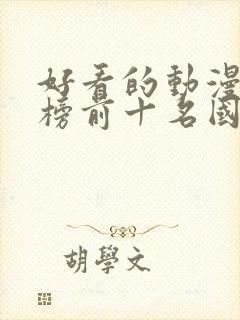 好看的動漫
榜前十名國
胡學文